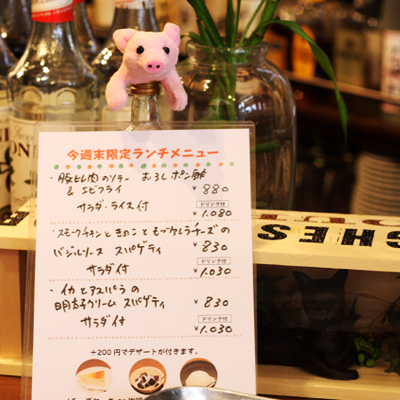 今週末限定ランチメニュー
・豚ヒレ肉のソテー おろしポン酢
& エビフライ ¥880
サラダ・ライス付 ドリンク付
¥1,080
・スモークチキンときのことモッツァレラチーズの
バジルソース スパゲティ ¥830
サラダ付 ドリンク付
¥1,030
・イカとアスパラの
明太子クリーム スパゲティ ¥830
サラダ付 ドリンク付
¥1,030
+200円でデザートが付きます。